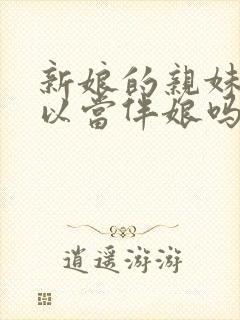 新娘的親妹
以當伴娘吗
逍遥游游